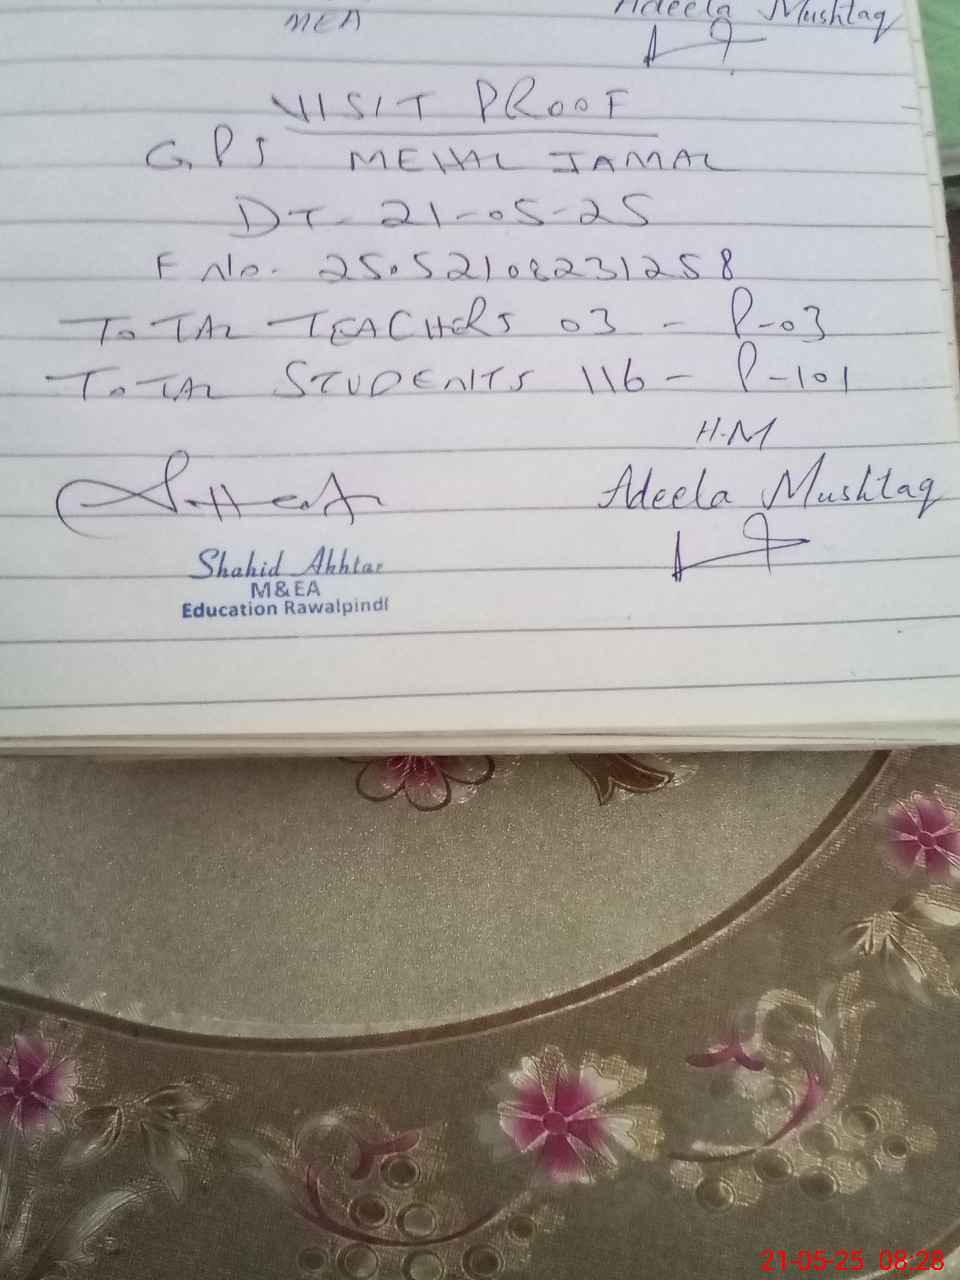 MEA
Adeela Mushtaq
VISIT PROOF
G.P.S MEHAL JAMAL
DT- 21-05-25
F No. 25052108231258
TOTAL TEACHERS 03 - P-03
TOTAL STUDENTS 116 - P-101
H.M
Adeela Mushtaq
Shahid Akhtar
M&EA
Education Rawalpindi
21-05-25 08:28